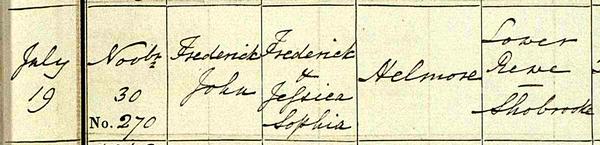 July
19
Novbr
30
No. 270
Frederick
John
Frederick
&
Jessica
Sophia
Helmore
Lower
Rewe
—
Shobrooke